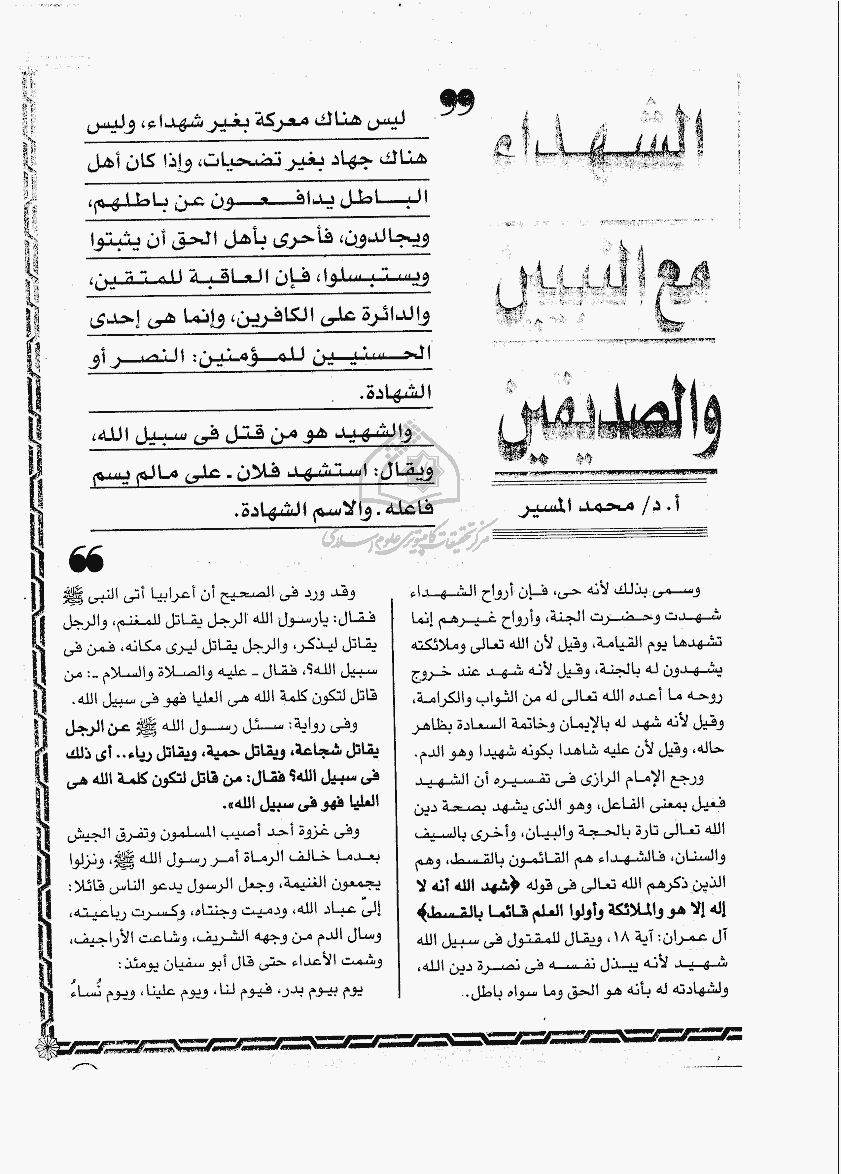 الشهداء
مع النبيين
والصديقين
أ. د/ محمد المسير
ليس هناك معركة بغير شهداء، وليس
هناك جهاد بغير تضحيات، وإذا كان أهل
البـاطل يدافـعـون عن باطلهم،
ويجالدون، فأحرى بأهل الحق أن يثبتوا
ويستبسلوا، فإن العاقبة للمتقين،
والدائرة على الكافرين، وإنما هى إحدى
الحسنيين للمؤمنين: النصر أو
الشهادة.
والشهيد هو من قتل فى سبيل الله،
ويقال: استشهد فلان ـ على مالم يسم
فاعله ـ والاسم الشهادة.
مركز تحقيقات كامپيوترى علوم اسلامى
وسمى بذلك لأنه حى، فإن أرواح الشهداء
شهدت وحضرت الجنة، وأرواح غيرهم إنما
تشهدها يوم القيامة، وقيل لأن الله تعالى وملائكته
يشهدون له بالجنة، وقيل لأنه شهد عند خروج
روحه ما أعده الله تعالى له من الثواب والكرامة،
وقيل لأنه شهد له بالإيمان وخاتمة السعادة بظاهر
حاله، وقيل لأن عليه شاهدا بكونه شهيدا وهو الدم.
ورجع الإمام الرازى فى تفسيره أن الشهيد
فعيل بمعنى الفاعل، وهو الذى يشهد بصحة دين
الله تعالى تارة بالحجة والبيان، وأخرى بالسيف
والسنان، فالشهداء هم القائمون بالقسط، وهم
الذين ذكرهم الله تعالى فى قوله ﴿شهد الله أنه لا
إله إلا هو والملائكة وأولوا العلم قائما بالقسط﴾
آل عمران: آية ١٨، ويقال للمقتول فى سبيل الله
شهيد لأنه يبذل نفسه فى نصرة دين الله،
ولشهادته له بأنه هو الحق وما سواه باطل..
وقد ورد فى الصحيح أن أعرابيا أتى النبى ﷺ
فقال: يارسول الله الرجل يقاتل للمغنم، والرجل
يقاتل ليذكر، والرجل يقاتل ليرى مكانه، فمن فى
سبيل الله؟، فقال ـ عليه والصلاة والسلام ـ: من
قاتل لتكون كلمة الله هى العليا فهو فى سبيل الله.
وفى رواية: سئل رسول الله ﷺ عن الرجل
يقاتل شجاعة، ويقاتل حمية، ويقاتل رياء.. أى ذلك
فى سبيل الله؟ فقال: من قاتل لتكون كلمة الله هى
العليا فهو فى سبيل الله».
وفى غزوة أحد أصيب المسلمون وتفرق الجيش
بعدما خالف الرماة أمر رسول الله ﷺ، ونزلوا
يجمعون الغنيمة، وجعل الرسول يدعو الناس قائلا:
إلىّ عباد الله، ودميت وجنتاه، وكسرت رباعيته،
وسال الدم من وجهه الشريف، وشاعت الأراجيف،
وشمت الأعداء حتى قال أبو سفيان يومئذ:
يوم بيوم بدر، فيوم لنا، ويوم علينا، ويوم نُساءُ